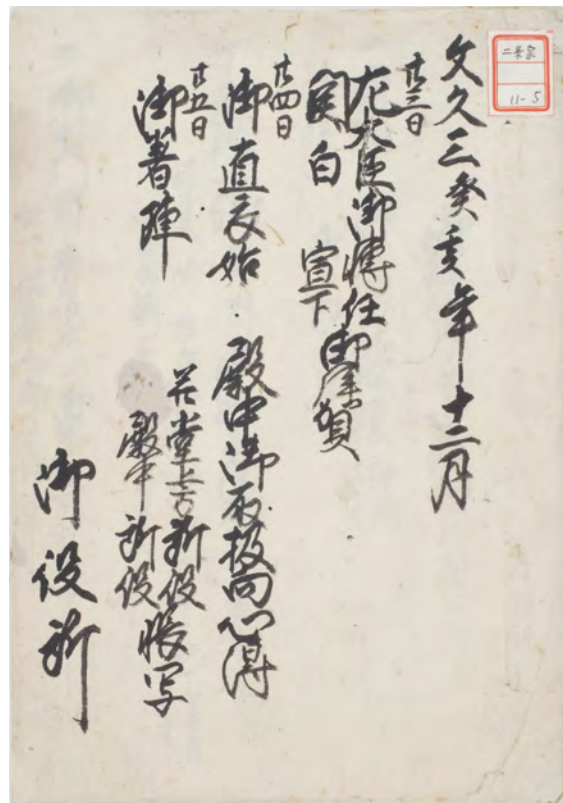 二条家
11-5
文久三癸亥年十二月
廿三日
左大臣御転任御拝賀
関白 宣下
廿四日
御直衣始 殿中御取扱向心得
廿五日
御著陣
若堂上方所役
殿中所役
帳写
御役所